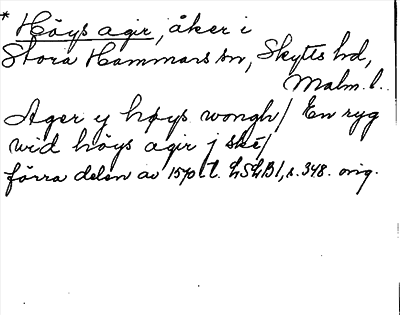 * Höys agir, åker i
Stora Hammars sn, Skytts hd,
Malm. l.
Ager ij høys wongh/ En ryg
wid höys agir j ske/
förra delen av 1570-t. LSLB1, s. 348. orig.